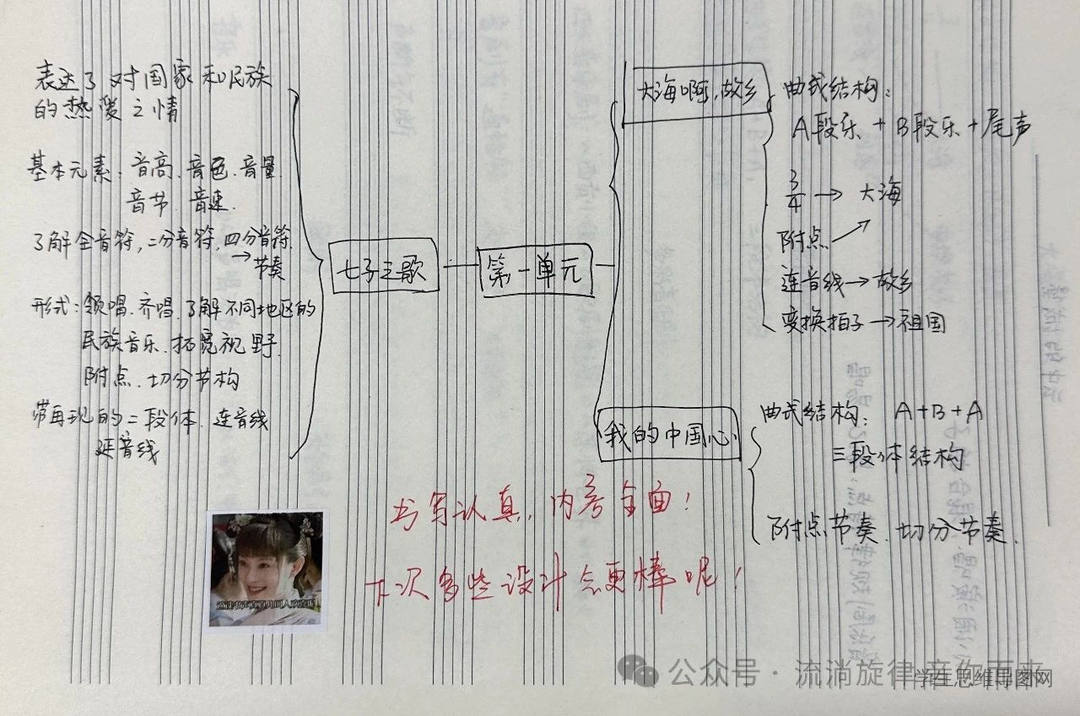 表达了对国家和民族
的热爱之情
基本元素：音高、音色、音量
音节、音速.
了解全音符，二分音符，四分音符.
→节奏
形式：领唱、齐唱、了解不同地区的
民族音乐、拓宽视野.
附点、切分节构
带再现的二段体、连音线
延音线
七子之歌
第一单元
大海啊，故乡
曲式结构：
A段乐 + B段乐 + 尾声
3/4 → 大海
附点
连音线→故乡
变换拍子→祖国
我的中国心
曲式结构： A+B+A
三段体结构
附点节奏、切分节奏.
书写认真，内容全面！
下次多些设计会更棒呢！
公众号·流淌旋律
学生思维导图网